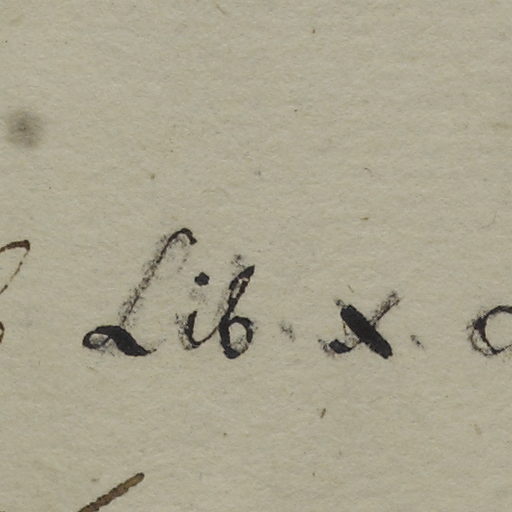 Lib. x.